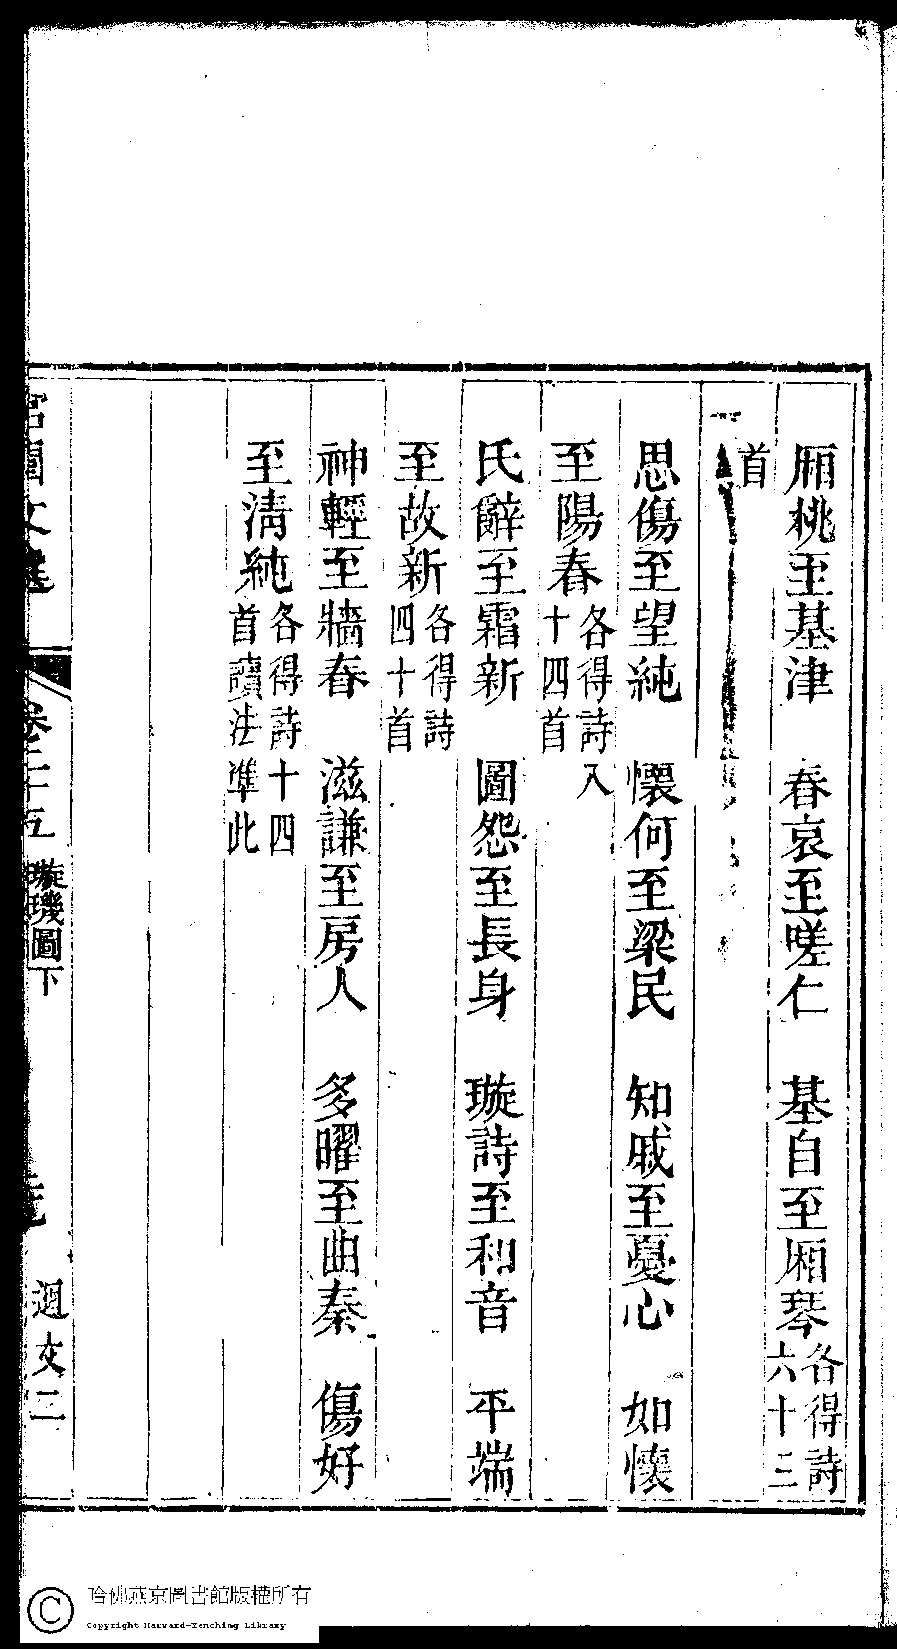 廂桃至基津　春哀至嗟仁　基自至廂琴各得詩六十三
首
思傷至望純　懷何至梁民　知戚至憂心　如懷
至陽春各得詩八十四首
氏辭至霜新　圖怨至長身　璇詩至和音　平端
至故新各得詩四十首
神輕至牆春　滋謙至房人　多曜至曲秦　傷好
至清純各得詩十四首讀法準此
宮閨文選
卷二十五
璇璣圖下
迴文二
哈佛燕京圖書館版權所有
Copyright Harvard-Yenching Library